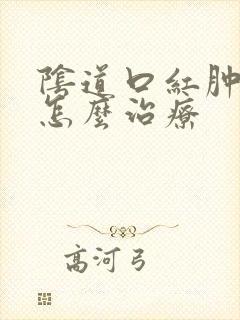 陰道口紅肿
怎麼治療
高河弓